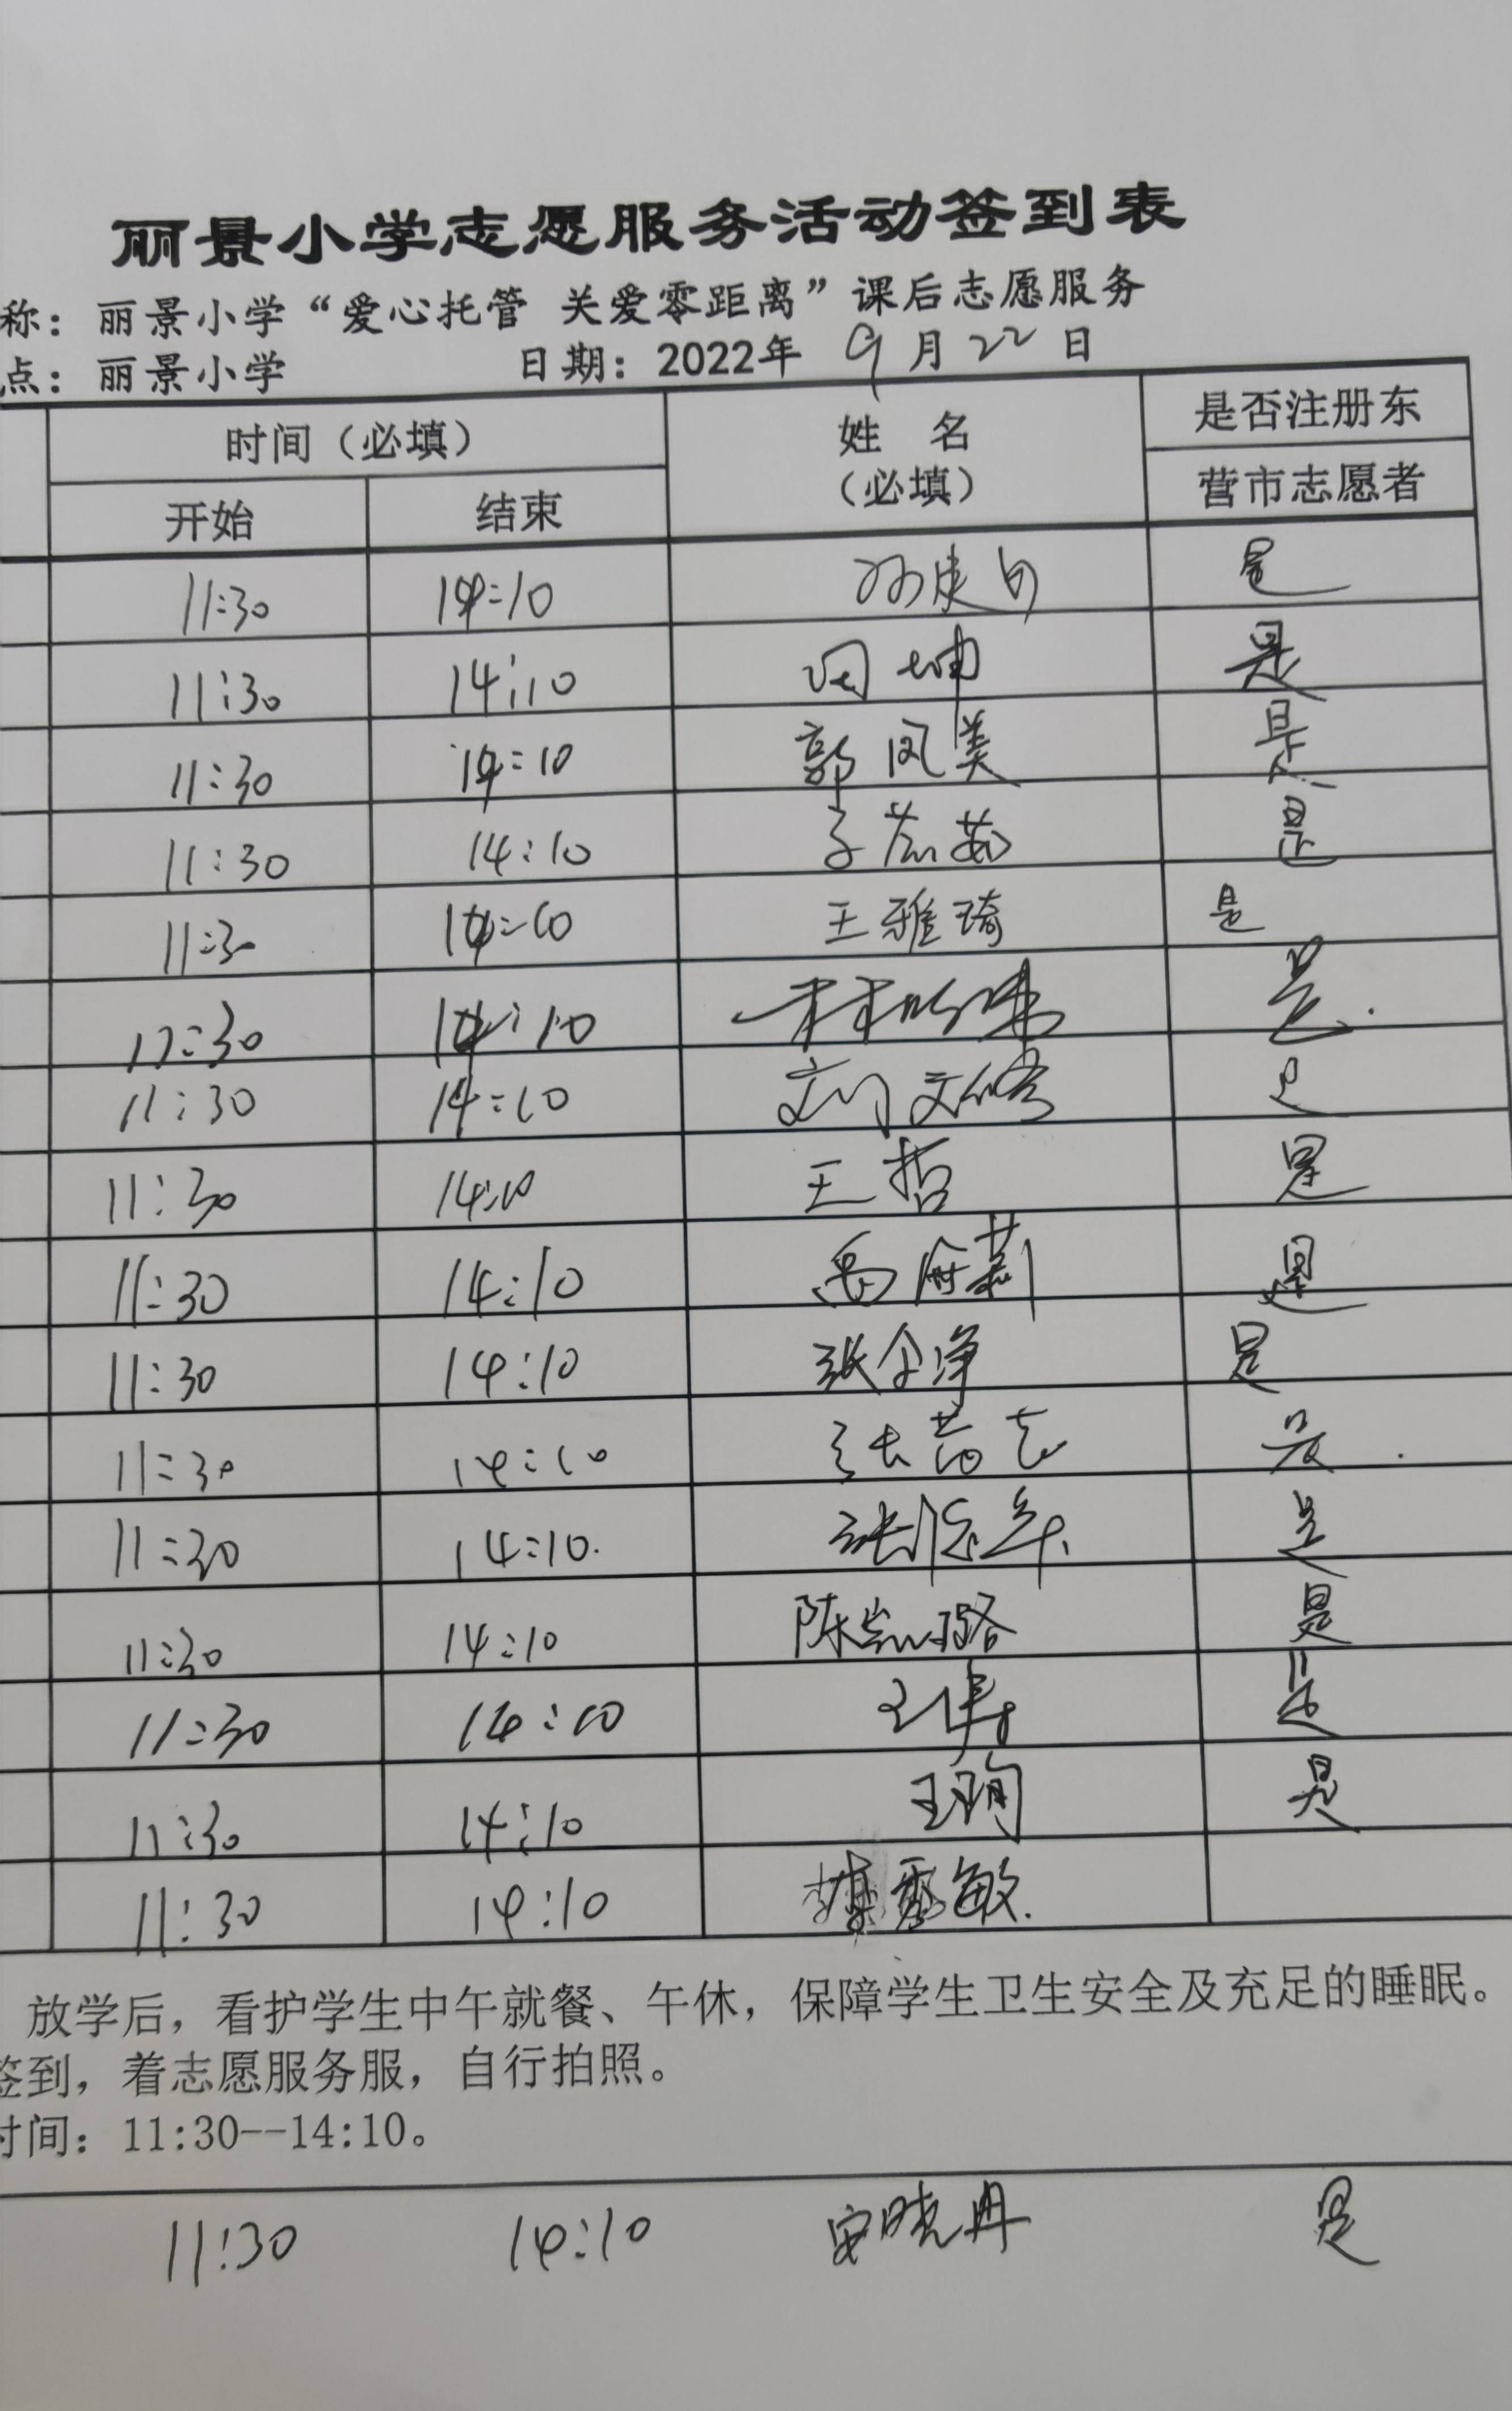 丽景小学志愿服务活动签到表
称：丽景小学“爱心托管 关爱零距离”课后志愿服务
点：丽景小学 日期：2022年 9月22日
时间（必填） 姓 名 （必填） 是否注册东
营市志愿者
开始 结束
11:30 14:10 是
11:30 14:10 周坤 是
11:30 14:10 郭凤美 是
11:30 14:10 是
11:30 14:10 王雅琦 是
11:30 14:10 是
11:30 14:10 刘文修 是
11:30 14:10 王哲 是
11:30 14:10 是
11:30 14:10 张 净 是
11:30 14:10 张 是
11:30 14:10. 张 是
11:30 14:10 陈凯璐 是
11:30 14:10 王 是
11:30 14:10 王珣 是
11:30 14:10 秀敏.
放学后，看护学生中午就餐、午休，保障学生卫生安全及充足的睡眠。
签到，着志愿服务服，自行拍照。
时间：11:30--14:10。
11:30 14:10 安晓冉 是